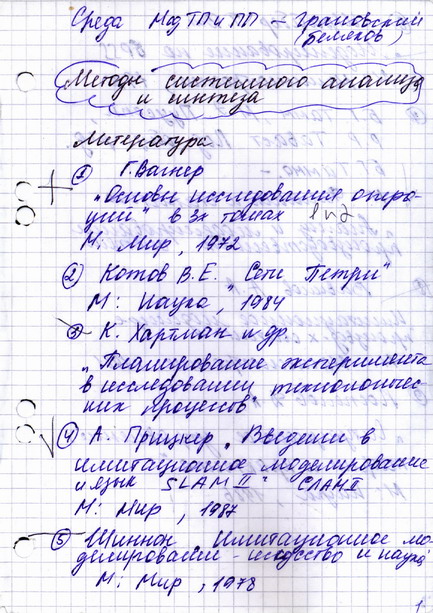 Среда МодТПиПП – Грановский
(Беляков)
Методы системного анализа
и синтеза
Литература
① Г. Вагнер
„Основы исследования опера-
ций" в 3х томах 1 и 2
М: Мир, 1972
② Котов В.Е. „Сети Петри"
М: Наука, 1984
③ К. Хартман и др.
„Планирование эксперимента
в исследовании технологичес-
ких процессов"
④ А. Прицкер „Введение в
имитационное моделирование
и язык SLAM II" СЛАМ II
М: Мир, 1987
⑤ Шеннон. Имитационное мо-
делирование – искусство и наука
М: Мир, 1978
1